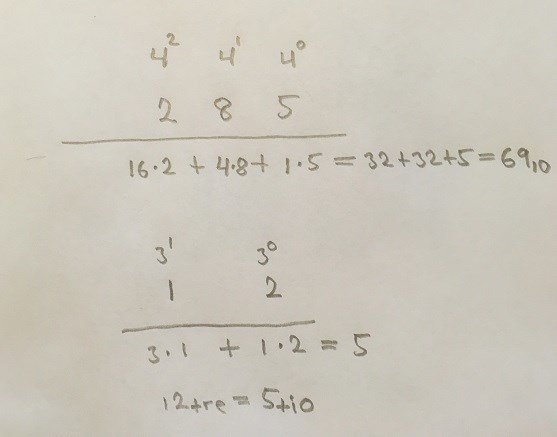 4² 4¹ 4⁰
2 8 5
16·2 + 4·8 + 1·5 = 32+32+5 = 69₁₀
3¹ 3⁰
1 2
3·1 + 1·2 = 5
12tre = 5tio